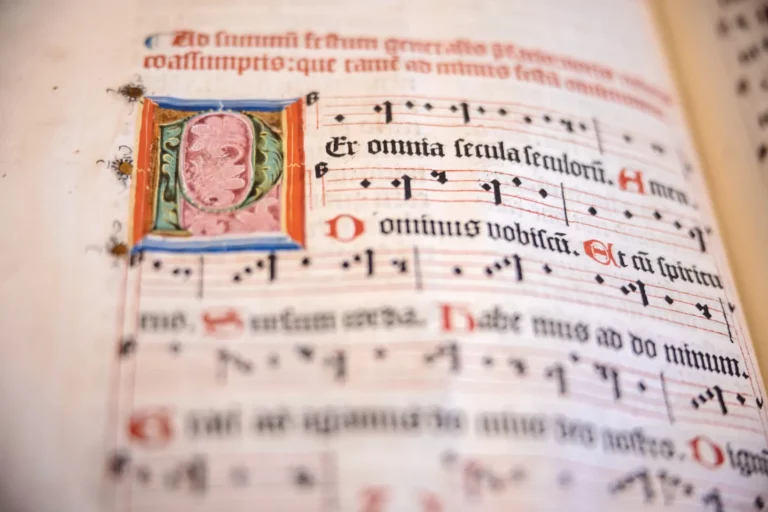 Ad summū festum generalis
coassumptis: que tamē ad minus festū
Per omnia secula seculorū. Amen.
Dominus vobiscū. Et cū spiritu
tuo. Sursum corda. Habe mus ad do minum.
Grati as agamus do mino deo nostro. Dignū